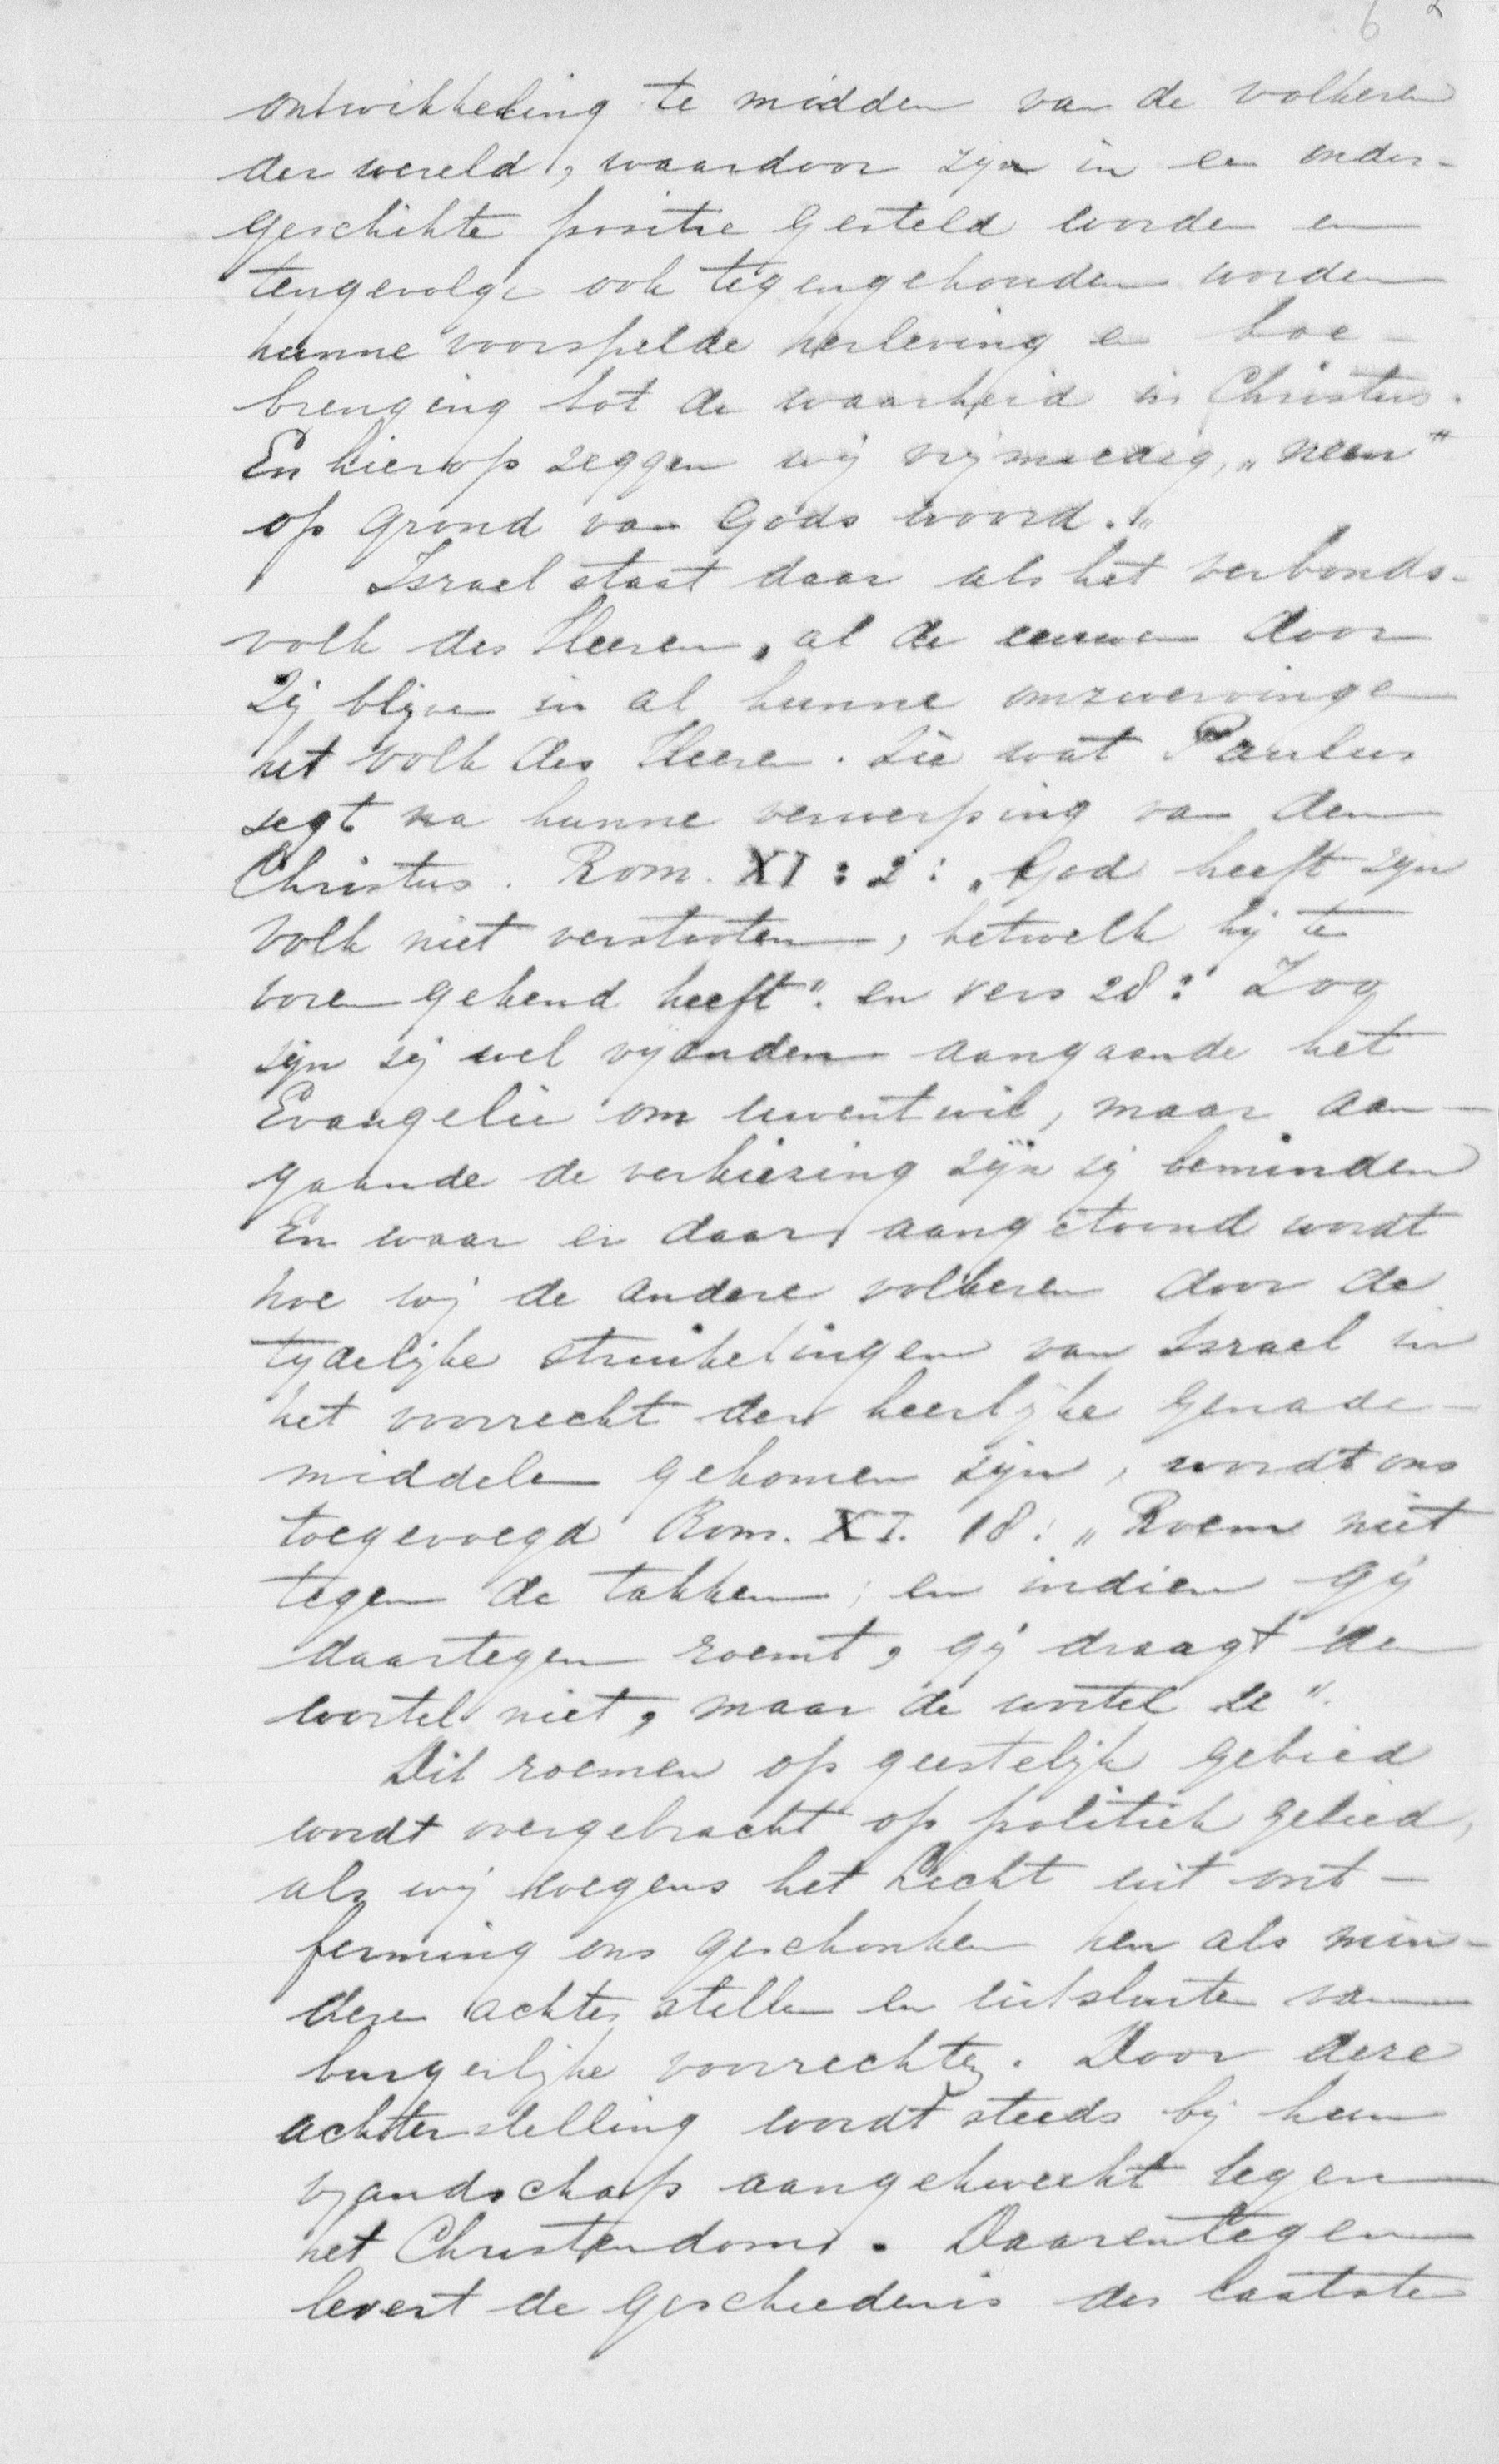 6 2
ontwikkeling te midden van de volkeren
der wereld, waardoor zijn in een onder-
geschikte positie gesteld worden en
tengevolge ook tegengehouden worden
hunne voorspelde herleving en toe-
brenging tot de waarheid in Christus.
En hierop zeggen wij vrijmoedig, „neen"
op grond van Gods woord."
Israel staat daar als het verbonds-
volk des Heeren, al de eeuwen door
Zij blijven in al hunne omzwervingen
het volk des Heeren. Zie wat Paulus
zegt na hunne verwerping van den
Christus. Rom. XI : 2 : „God heeft zijn
volk niet verstooten, hetwelk hij te
voren gekend heeft". en vers 28 : Zoo
zijn zij wel vijanden aangaande het
Evangelie om uwentwil, maar aan-
gaande de verkiezing zijn zij beminden
En waar er daar aangetoond wordt
hoe wij de andere volkeren door de
tijdelijke struikelingen van Israel in
het voorrecht der heerlijke genade-
middelen gekomen zijn, wordt ons
toegevoegd Rom. XI. 18 : „Roem niet
tegen de takken; en indien gij
daartegen roemt, gij draagt den
wortel niet, maar de wortel u".
Dit roemen op geestelijk gebied
wordt overgebracht op politiek gebied,
als wij wegens het Licht uit ont-
ferming ons geschonken hen als min-
dere achter stellen en uitsluiten van
burgerlijke voorrechten. Door deze
achterstelling wordt steeds bij hen
vijandschap aangekweekt tegen
het Christendom. Daarentegen
levert de geschiedenis der laatste